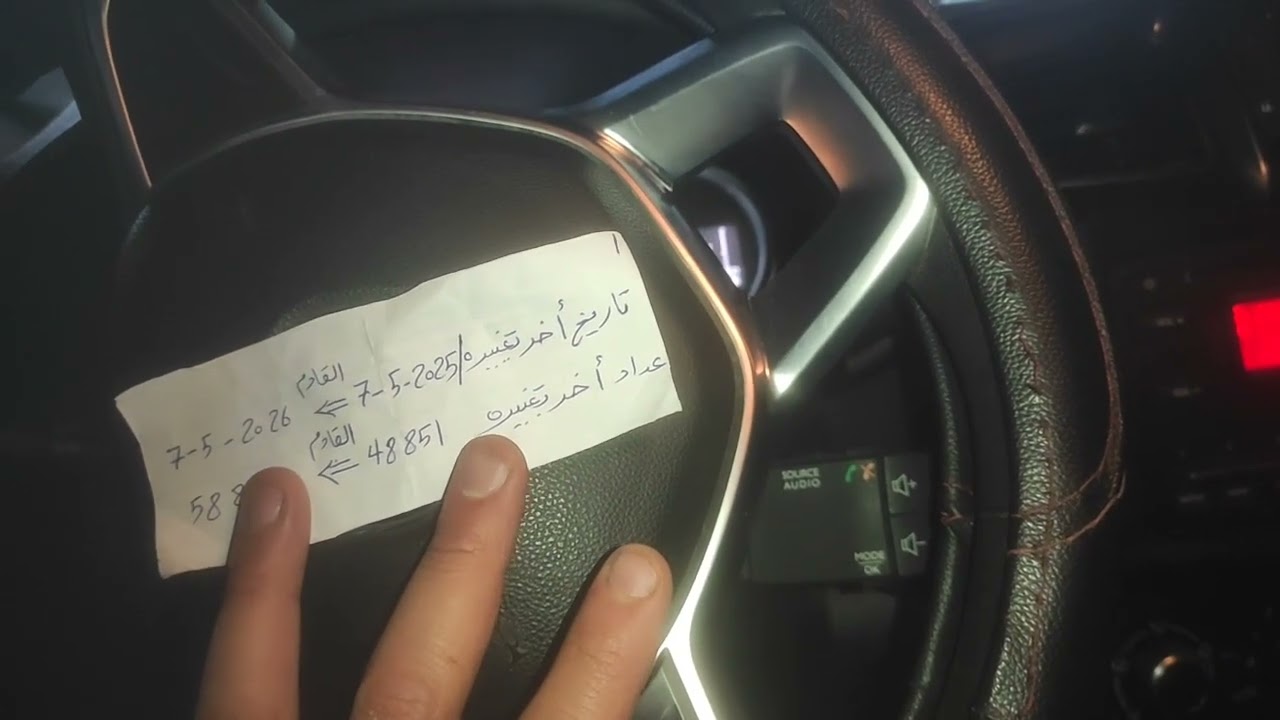 القادم
تاريخ أخر تغييره/ 7-5-2025 ⇐ 7-5-2026
القادم
عداد أخر تغييره 48851 ⇐ 588
SOURCE
AUDIO
MODE
OK